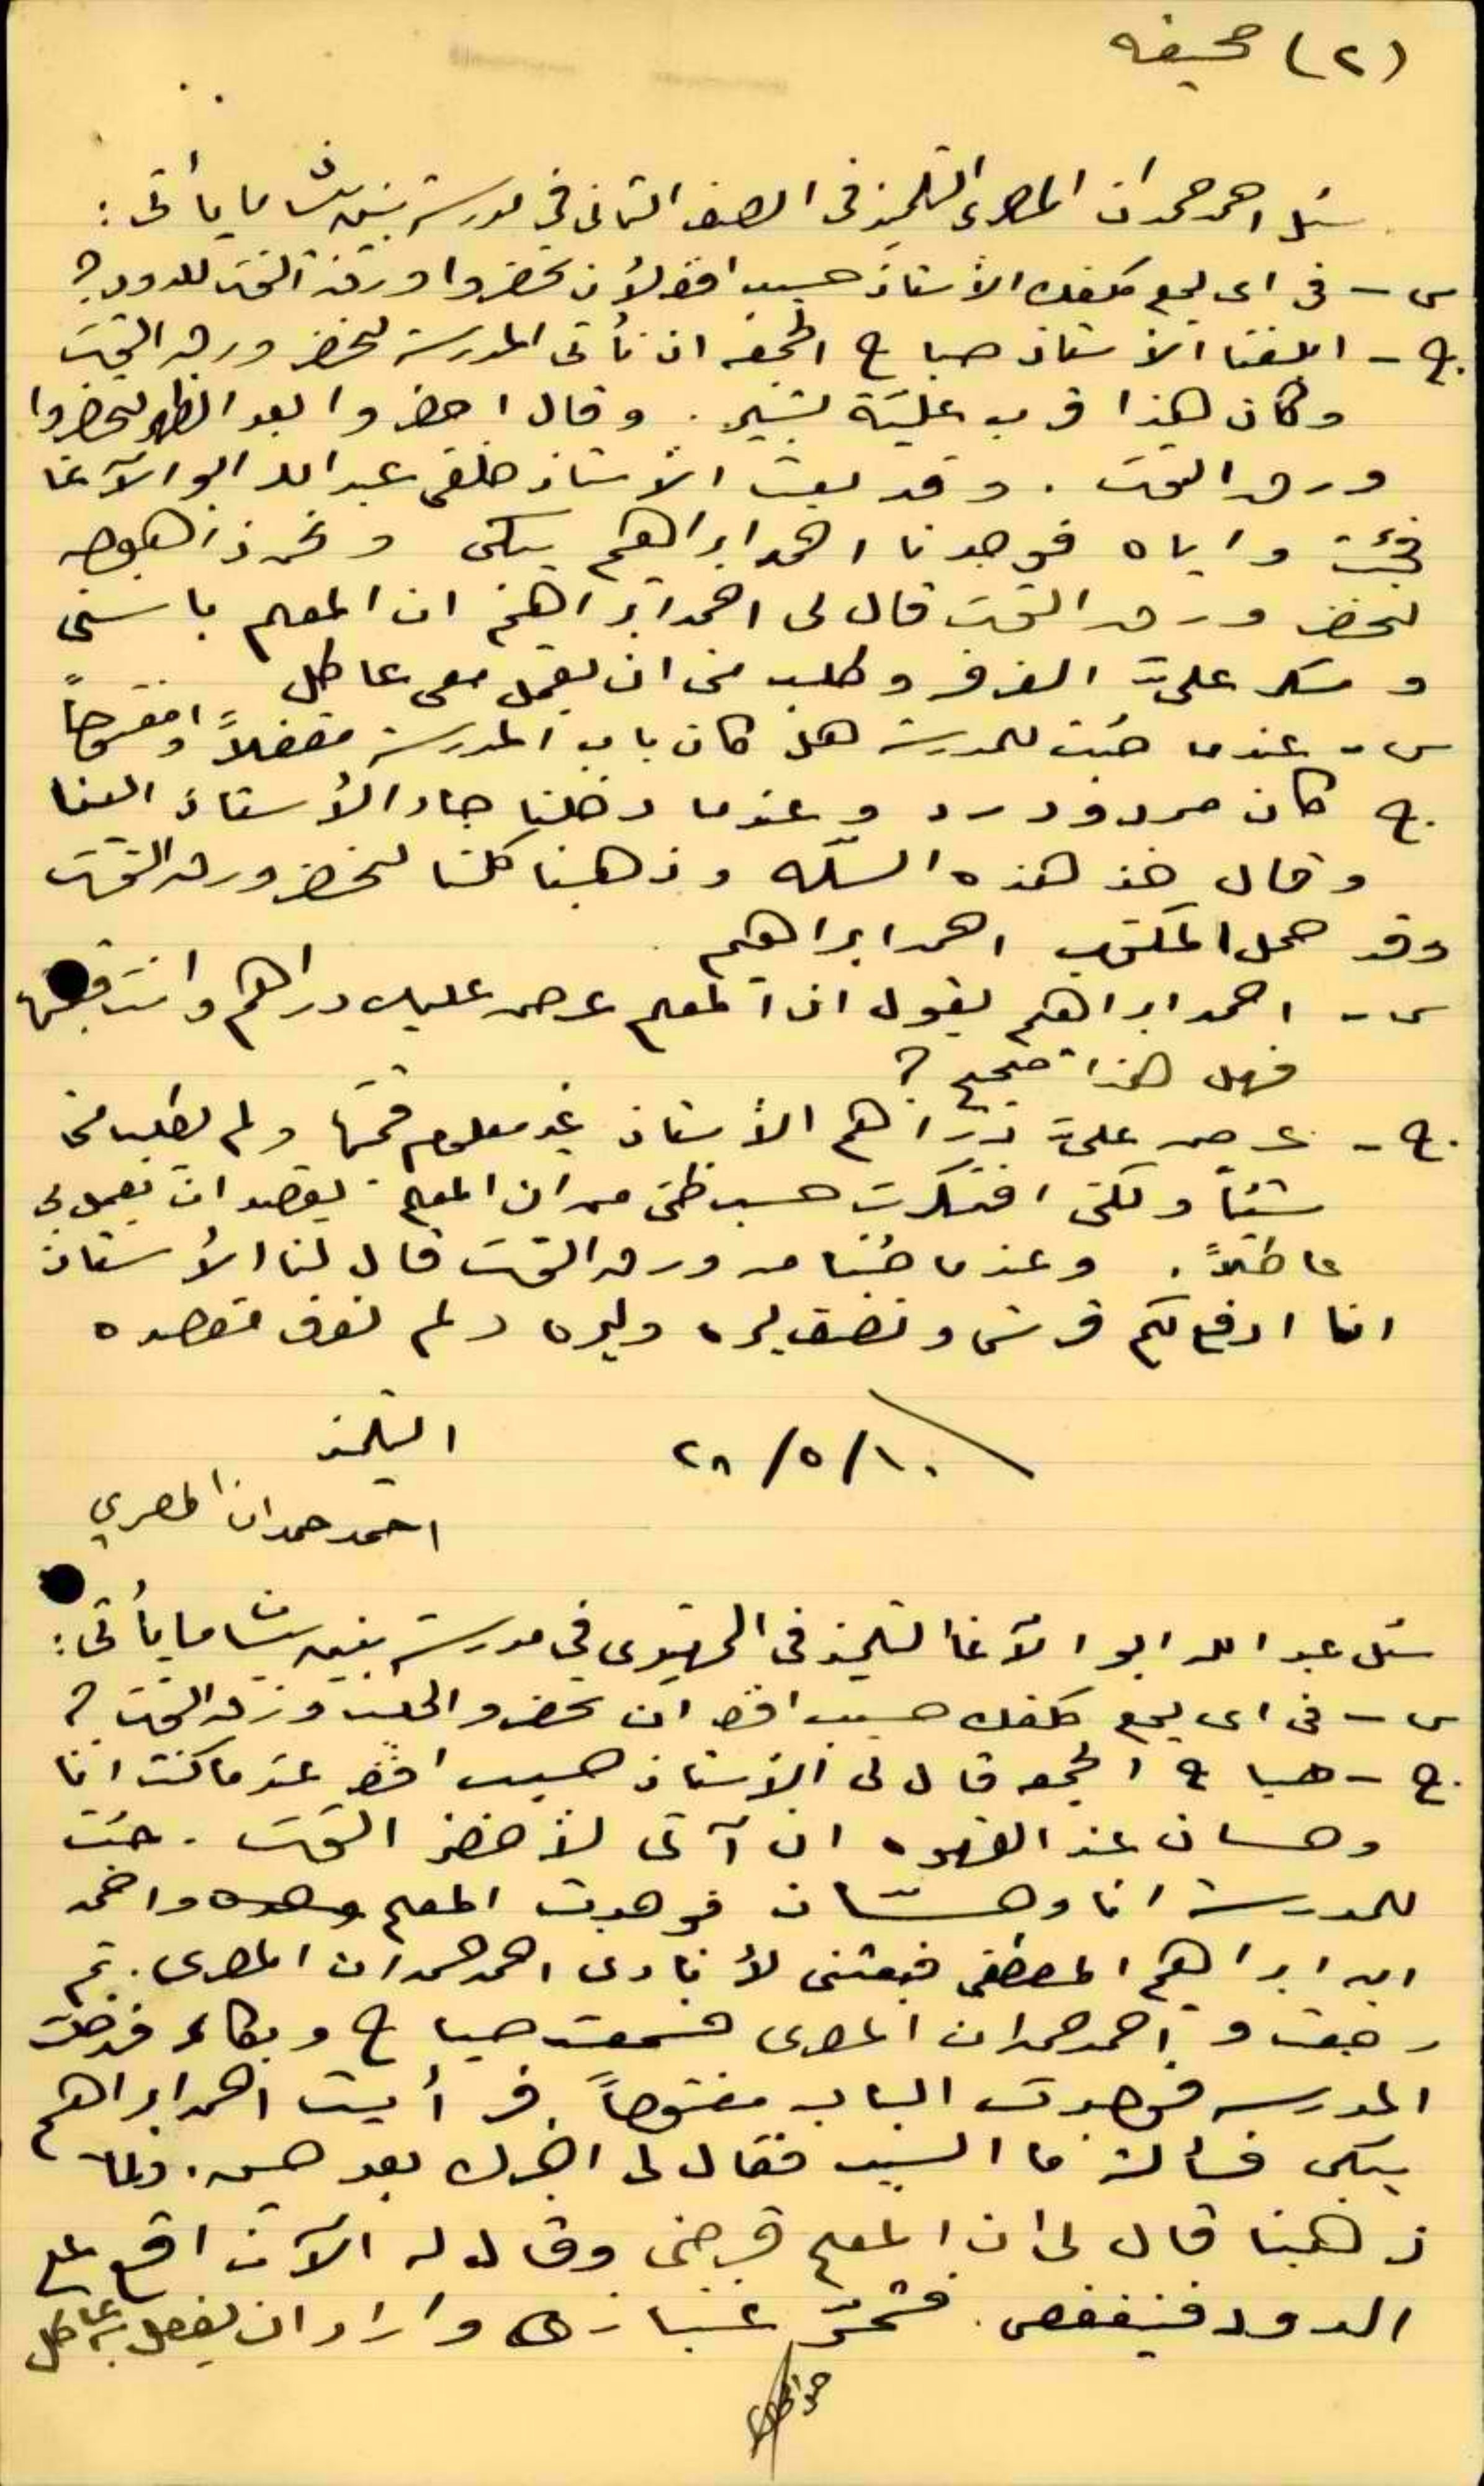 (٢) صحيفه
سئل احمد حمدان المصرى التلميذ فى الصف الثانى في مدرسة بيت ما يأتى :
س - فى اى يوم كلفك الأستاذ حسيب افندي لأن تحضروا ورق التوت للدود ؟
ج - ابلغنا الأستاذ صباح الجمعه ان نأتى المدرسة لنحضر ورق التوت
وكان هذا قرب علية بشير . وقال احضروا بعد الظهر لتحضروا
ورق التوت . وقد بعث الأستاذ خلفى عبد الله ابو الآغا
فجئت واياه فوجدنا احمد ابراهيم يبكى ونحن ذاهبون
لنحضر ورق التوت قال لى احمد ابراهيم ان المعلم باسنى
وسكر عليّ الغرفه وطلب منى ان يعمل معى عاطل
س - عندما جئت للمدرسة هل كان باب المدرسة مقفلاً او مفتوحاً
ج كان مردود رد وعندما دخلنا جاء الأستاذ الينا
وقال خذ هذه السلّه وذهبنا كلنا لنحضر ورق التوت
وقد حمل المكتوب احمد ابراهيم
س - احمد ابراهيم يقول ان المعلم عرض عليك دراهم وانت
فهل هذا صحيح ؟
ج - عرض عليّ دراهم الأستاذ غير معلوم قيمتها ولم يطلب منى
شيئاً ولكنى افتكرت حسب ظنى من ان المعلم يقصد ان يعمل بي
عاطلاً . وعندما جئنا من ورق التوت قال لنا الأستاذ
انا ادفع لكم قرش ونصف ليره وليره ولم نعرف مقصده
٢٨/٥/١٠
التلميذ
احمد حمدان المصري
سئل عبد الله ابو الآغا التلميذ فى التمهيدى في مدرسة بيت ما يأتى :
س - فى اى يوم كلفك حسيب افندى ان تحضر والجلب ورق التوت ؟
ج - صباح الجمعه قال لى الأستاذ حسيب افندى عندما كنت انا
وحسان عند القهوه ان آتى لأحضر التوت . جئت
للمدرسة انا وحسّان فوجدت المعلم وحده واحمد
ابن ابراهيم المصطفى فبعثنى لأنادى احمد حمدان المصرى . ثم
رجعت و احمد حمدان المصرى فسمعت صياح وبكاء فدخلت
المدرسه فوجدت الباب مفتوحاً . فرأيت احمد ابراهيم
يبكى فسألته ما السبب فقال لى اخبرك بعد حين . ولما
ذهبنا قال لى ان المعلم قرصنى وقال له الآن اقع على
الدود فينفغص . وأراد ان يفعل به عاطل